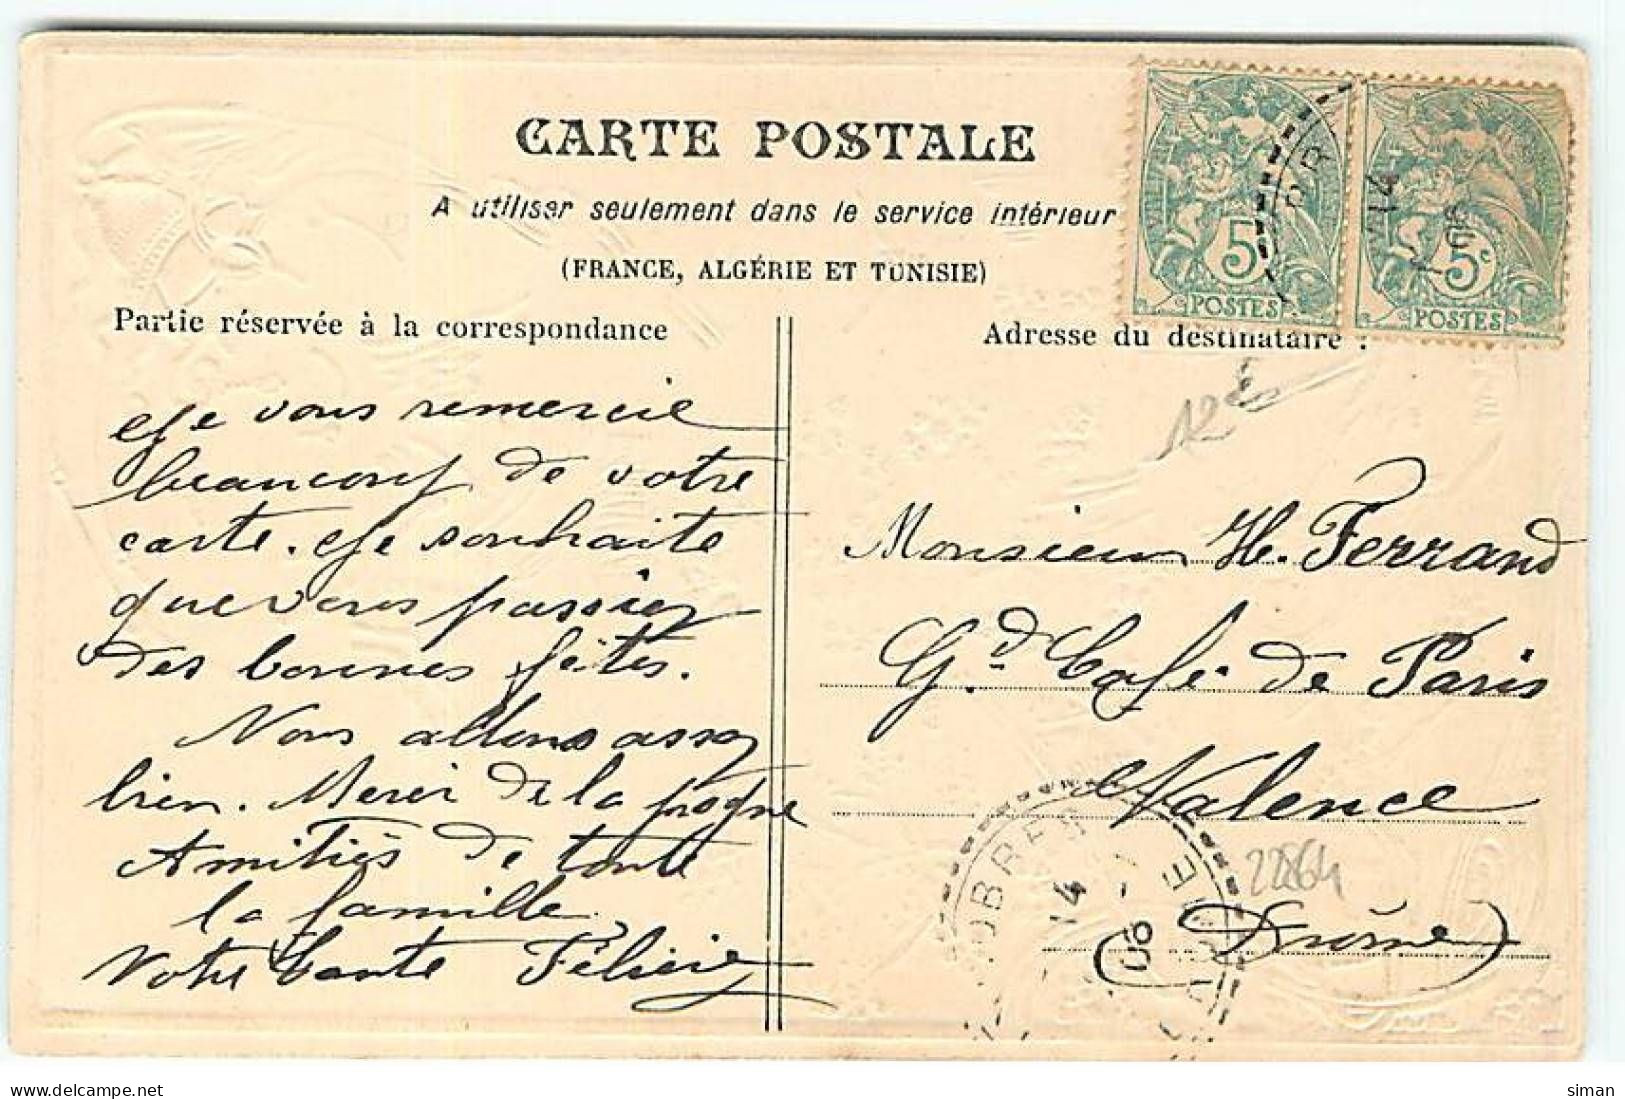 CARTE POSTALE
A utiliser seulement dans le service intérieur
(FRANCE, ALGÉRIE ET TUNISIE)
Partie réservée à la correspondance
Adresse du destinataire :
5
POSTES
5c
POSTES
14
06
12€
Je vous remercie
beaucoup de votre
carte. Je souhaite
que vous passiez
des bonnes fêtes.
Nous allons assez
bien. Merci de la
Amitiés de toute
la famille
Votre tante Félicie
Monsieur H. Ferrand
Gd. Café de Paris
Valence
(Drôme)
14
06
22864
delcampe.net
siman